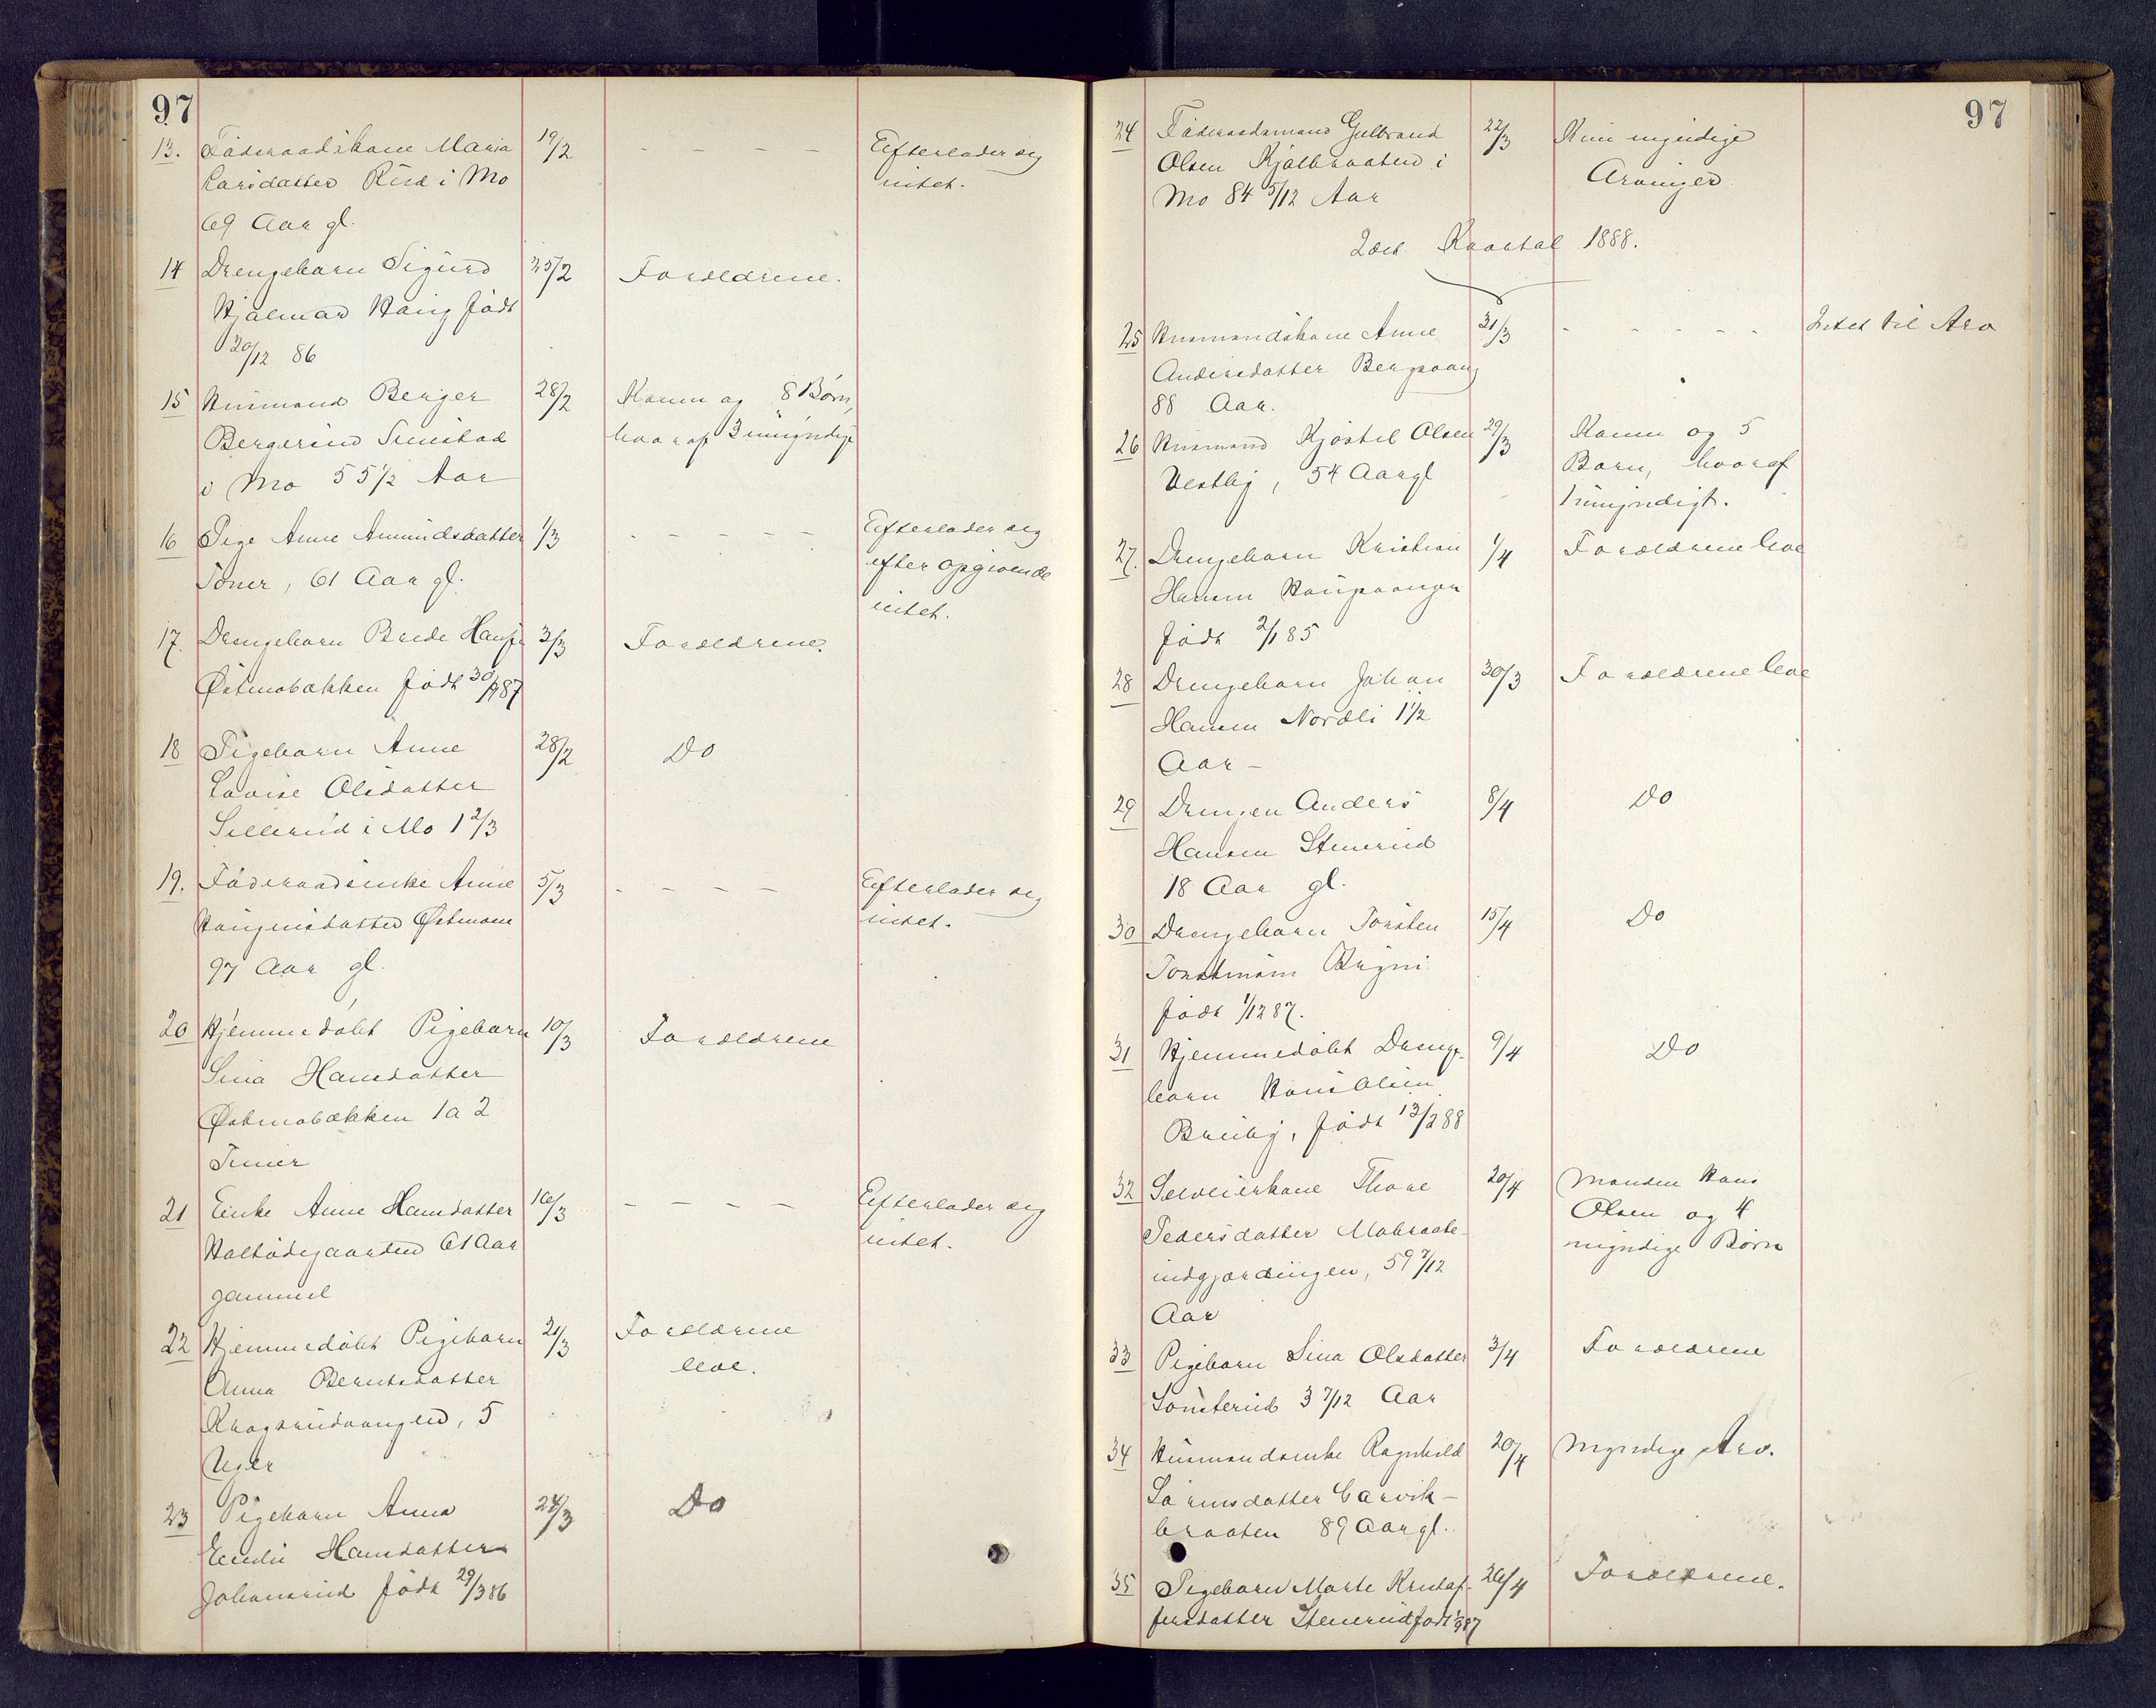 97
13. Föderaadskone Maria 19/2 - - - - Efterlader sig
Larsdatter Rud i Mo intet.
69 Aar gl.
14 Drengebarn Sigurd 25/2 Forældrene.
Hjalmar Haug född
20/12 86
15 Husmand Berger 28/2 Konen og 8 Børn,
Bergersen Simstad hvoraf 3 umyndige
i Mo 55 1/2 Aar
16 Pige Anne Amundsdatter 1/3 - - - - - Efterlader sig
Toner, 61 Aar gl. efter opgivende
intet.
17. Drengebarn Brede Hansen 3/3 Forældrene.
Østmobækken född 30/1 87
18 Pigebarn Anne 28/2 Do
Lovise Olsdatter
Sillerud i Mo 1 2/3
19. Föderaadsenke Anne 5/3 - - - - Efterlader sig
Haagensdatter Østmoen intet.
97 Aar gl.
20 Hjemmedöbt Pigebarn 10/3 Forældrene
Sina Hansdatter
Østmobækken 1 a 2
Timer
21 Enke Anne Hansdatter 16/3 - - - - Efterlader sig
Holtödegaarden 61 Aar intet.
gammel
22 Hjemmedöbt Pigebarn 21/3 Forældrene
Anna Berntsdatter leve.
Kragsrudvangen, 5
Uger
23 Pigebarn Anna 24/3 Do
Emilie Hansdatter
Johansrud född 29/3 86
97
24 Föderaadsmand Gulbrand 22/3 Kun myndige
Olsen Kjølbraaten i Arvinger
Mo 84 5/12 Aar
2det Kvartal 1888.
25 Husmandskone Anne 31/3 - - - - - Intet til Arv
Andersdatter Bergvang
88 Aar.
26 Husmand Kjøstel Olsen 29/3 Konen og 5
Vestby, 54 Aar gl Børn, hvoraf
1 umyndigt.
27. Drengebarn Kristian 1/4 Forældrene leve
Hansen Haugvangen
född 2/1 85
28 Drengebarn Johan 30/3 Forældrene leve
Hansen Nordli 1 1/2
Aar -
29 Drengen Anders 8/4 Do
Hansen Stenerud
18 Aar gl.
30 Drengebarn Torsten 15/4 Do
Torstensen Brgni
född 1/12 87.
31 Hjemmedöbt Drenge- 9/4 Do
barn Hans Olsen
Brenby, född 13/2 88
32 Selveierkone Thore 20/4 Manden Hans
Pedersdatter Mobraate- Olsen og 4
indgjærdingen, 59 7/12 myndige Børn
Aar
33 Pigebarn Lina Olsdatter 3/4 Forældrene
Sönsterud 3 7/12 Aar
34 Husmandsenke Ragnhild 20/4 Myndige Arv.
Sörensdatter Garvik-
braaten 89 Aar gl.
35 Pigebarn Marte Kristof- 26/4 Forældrene.
fersdatter Stenerud född 87